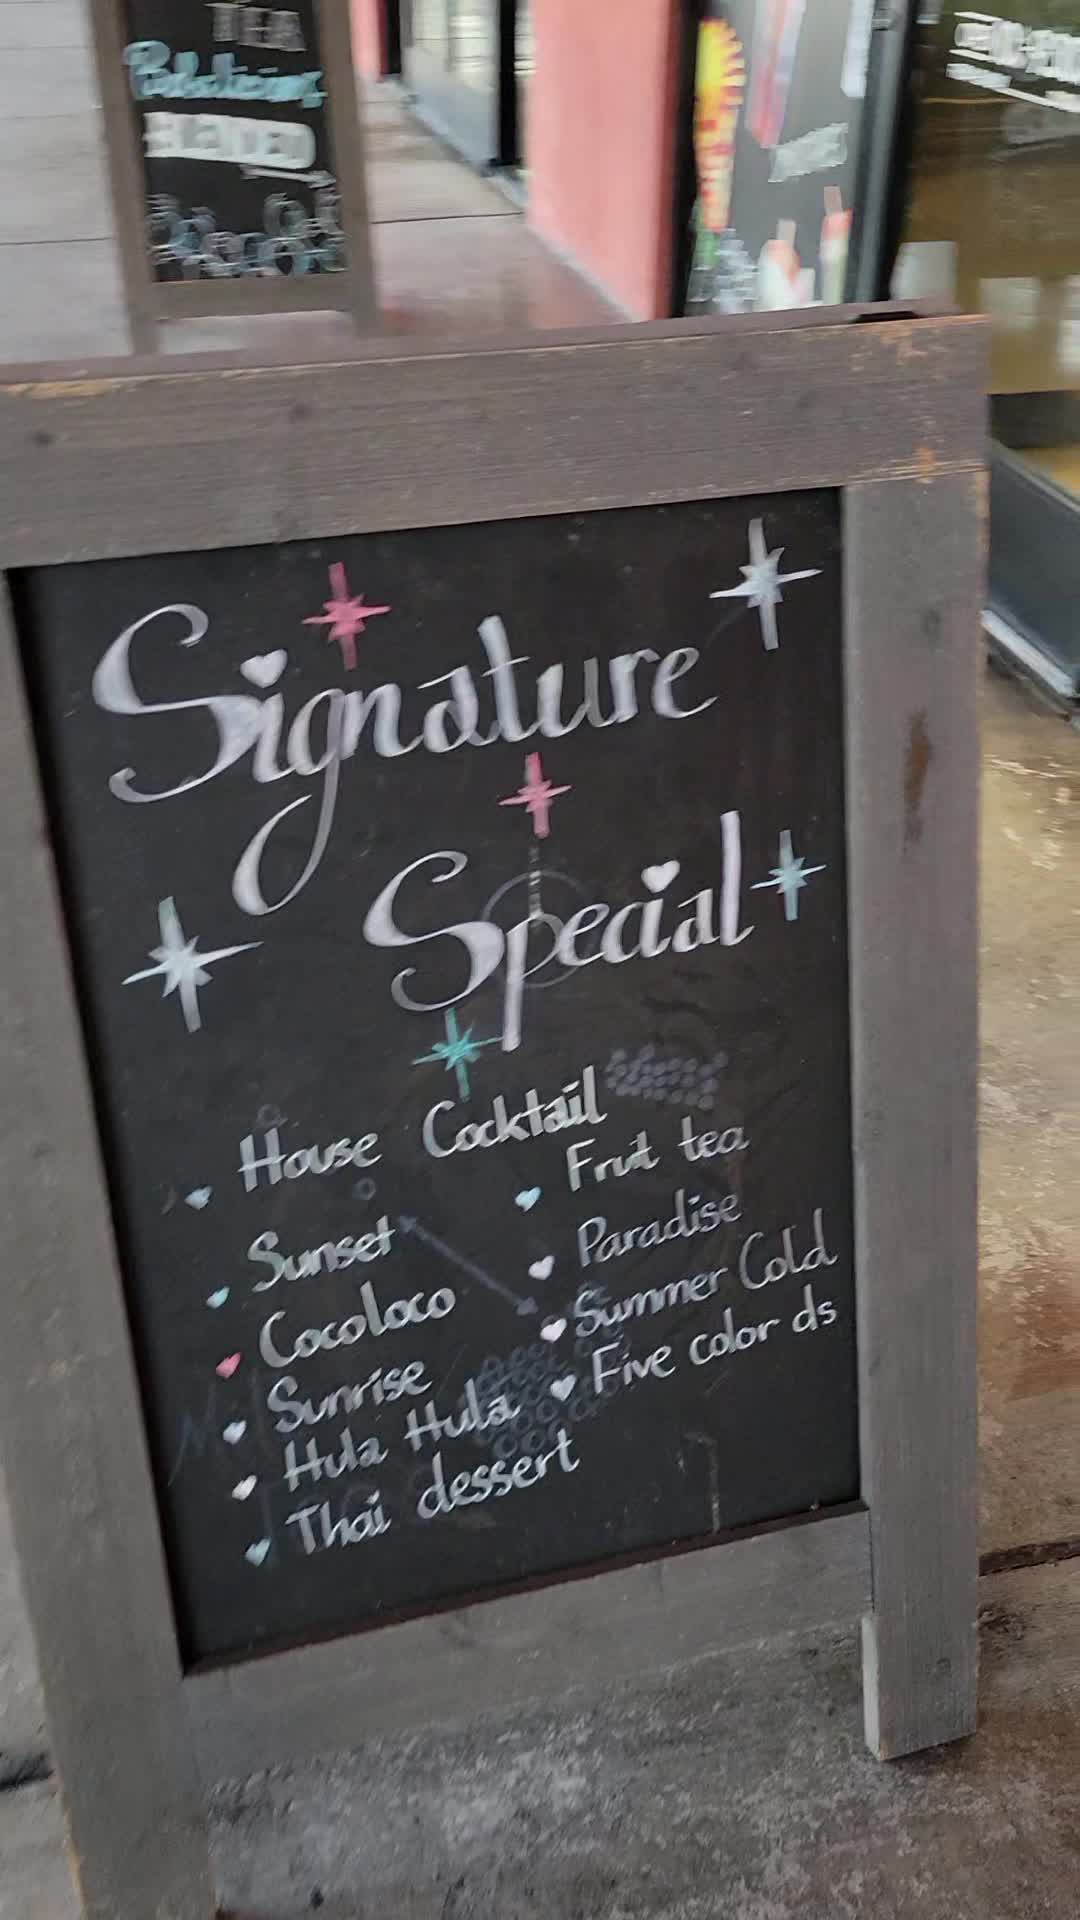 TEA
BLENDED
Signature
Special
House Cocktail
Sunset
Cocoloco
Sunrise
Hula Hula
Thai dessert
Fruit tea
Paradise
Summer Cold
Five color ds